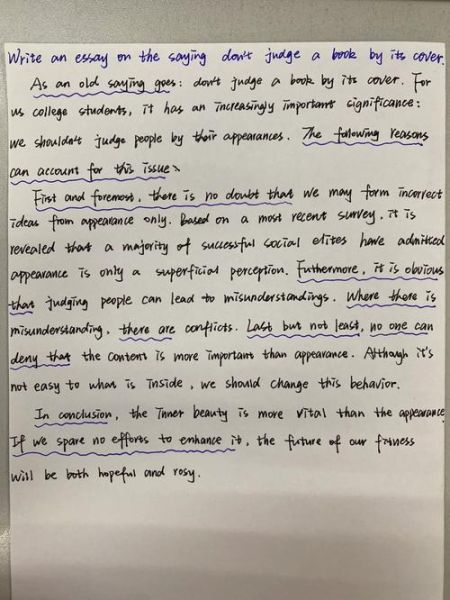 Write an essay on the saying don't judge a book by its cover.
As an old saying goes: don't judge a book by its cover. For
us college students, it has an increasingly important significance:
we shouldn't judge people by their appearances. The following reasons
can account for this issue:
First and foremost, there is no doubt that we may form incorrect
ideas from appearance only. Based on a most recent survey, it is
revealed that a majority of successful social elites have admitted
appearance is only a superficial perception. Futhermore, it is obvious
that judging people can lead to misunderstandings. Where there is
misunderstanding, there are conflicts. Last but not least, no one can
deny that the content is more important than appearance. Although it's
not easy to what is inside, we should change this behavior.
In conclusion, the inner beauty is more vital than the appearance.
If we spare no efforts to enhance it, the future of our fitness
will be both hopeful and rosy.